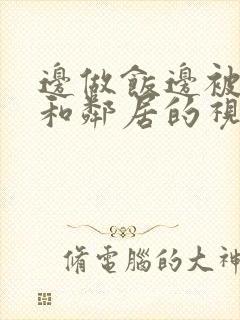 邊做飯邊被
和鄰居的視
脩電腦的大神